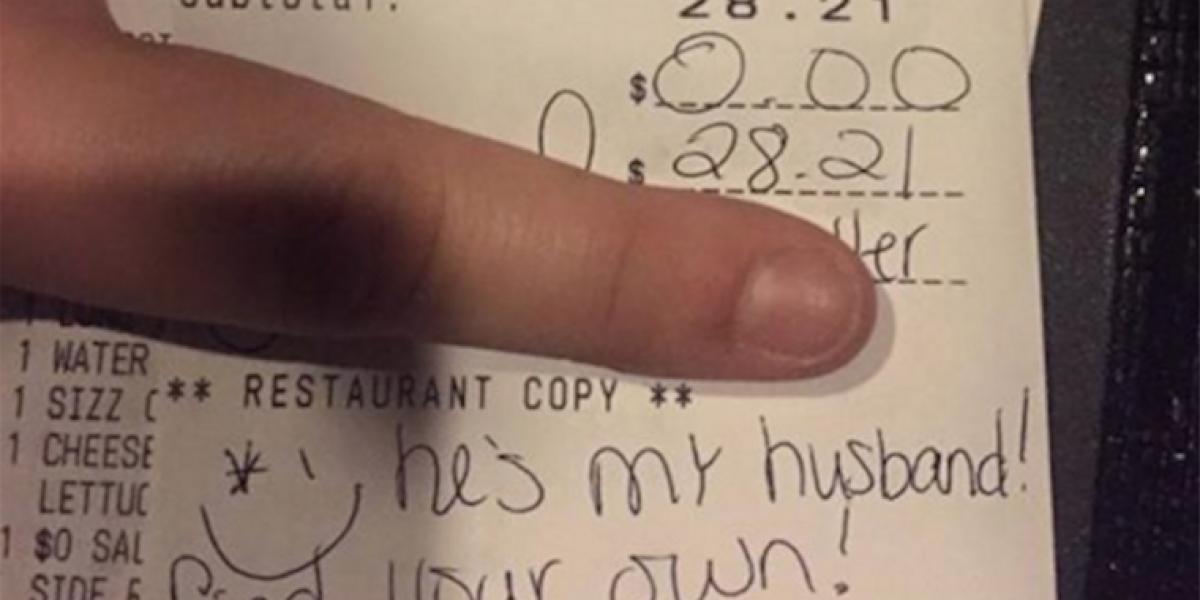 Subtotal: 28.21
$ 0.00
$ 28.21
1 WATER
1 SIZZ
1 CHEESE
LETTUC
1 $0 SAL
SIDE
** RESTAURANT COPY **
he's my husband!
Find your own!